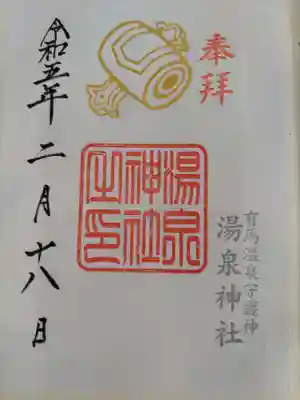 奉拝
有馬温泉守護神
湯泉神社
湯泉神社之印
令和五年二月十八日